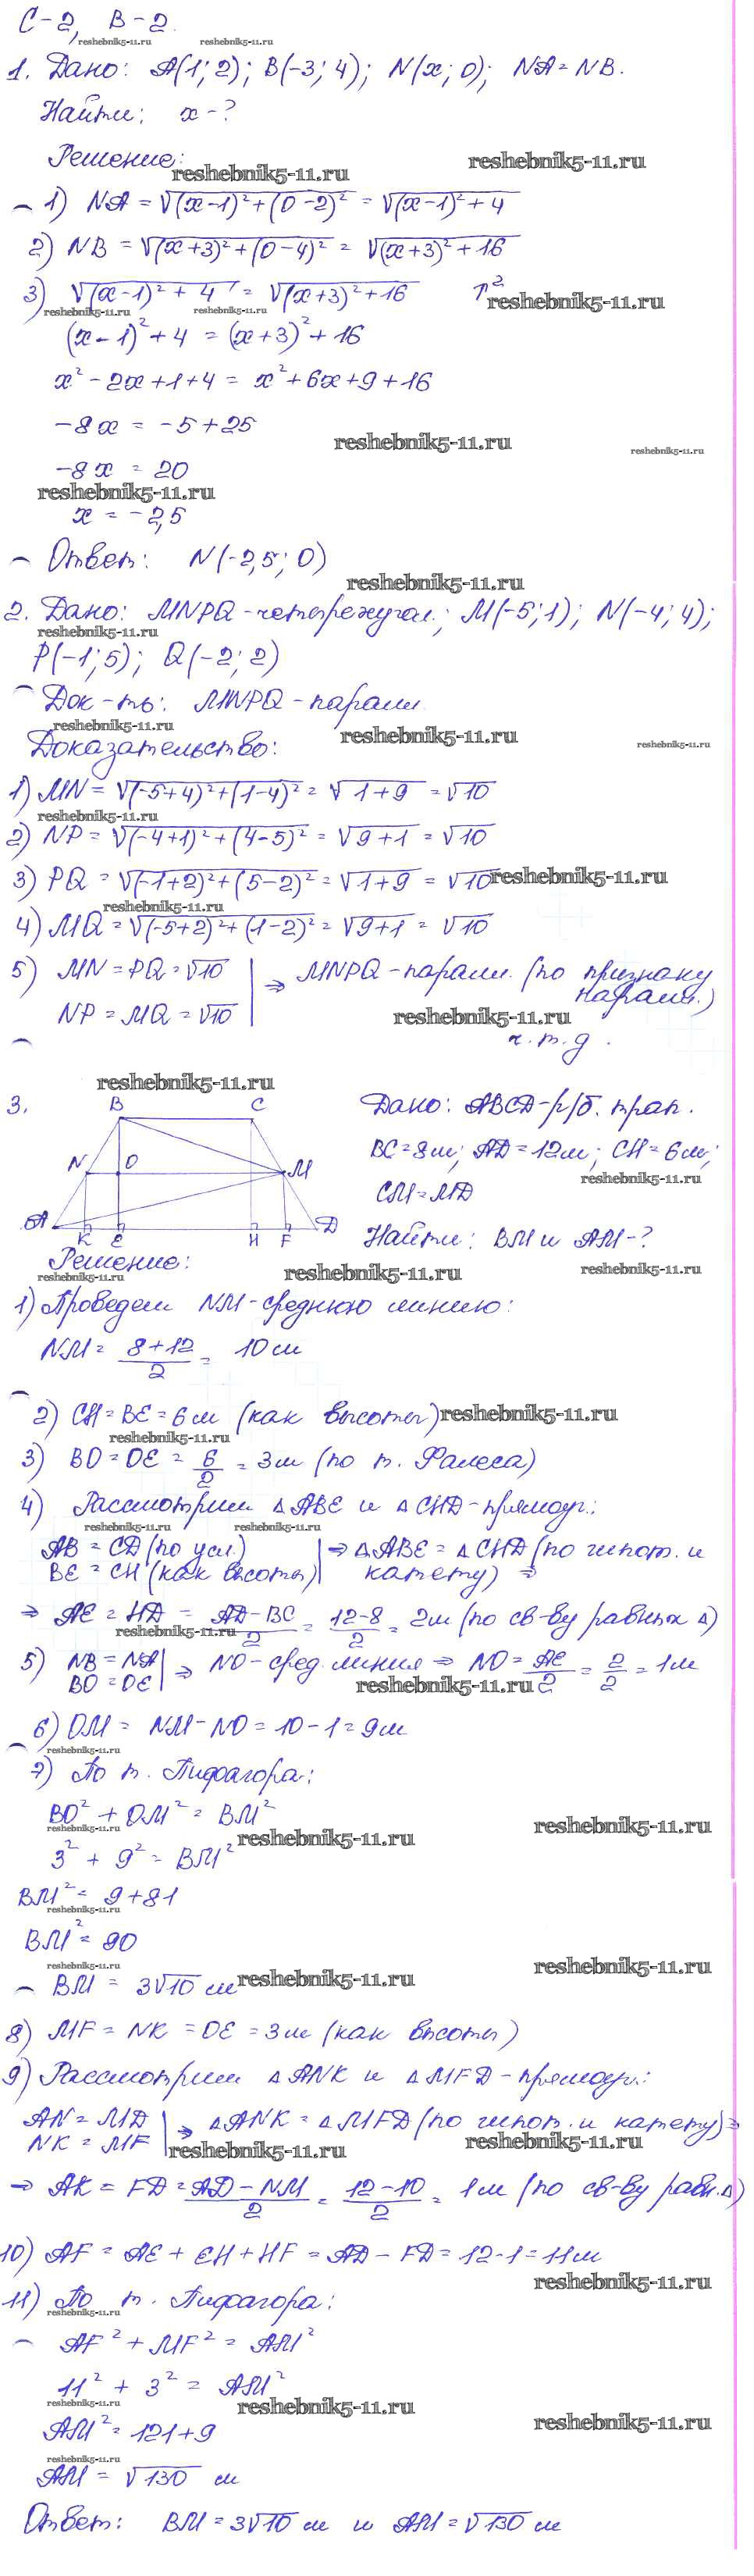 С-2, В-2.
reshebnik5-11.ru reshebnik5-11.ru
1. Дано: A(1; 2); B(-3; 4); N(x; 0); NA = NB.
Найти: x - ?
Решение:
reshebnik5-11.ru reshebnik5-11.ru
1) NA = √((x-1)² + (0-2)²) = √((x-1)² + 4)
2) NB = √((x+3)² + (0-4)²) = √((x+3)² + 16)
3) √((x-1)² + 4) = √((x+3)² + 16) ↑²
reshebnik5-11.ru reshebnik5-11.ru reshebnik5-11.ru
(x-1)² + 4 = (x+3)² + 16
x² - 2x + 1 + 4 = x² + 6x + 9 + 16
-8x = -5 + 25
reshebnik5-11.ru reshebnik5-11.ru
-8x = 20
reshebnik5-11.ru
x = -2,5
Ответ: N(-2,5; 0)
reshebnik5-11.ru
2. Дано: MNPQ - четырехугол.; M(-5; 1); N(-4; 4);
reshebnik5-11.ru
P(-1; 5); Q(-2; 2)
Док-ть: MNPQ - паралл.
reshebnik5-11.ru reshebnik5-11.ru reshebnik5-11.ru
Доказательство:
1) MN = √((-5+4)² + (1-4)²) = √(1+9) = √10
reshebnik5-11.ru
2) NP = √((-4+1)² + (4-5)²) = √(9+1) = √10
3) PQ = √((-1+2)² + (5-2)²) = √(1+9) = √10
reshebnik5-11.ru
reshebnik5-11.ru
4) MQ = √((-5+2)² + (1-2)²) = √(9+1) = √10
5) MN = PQ = √10 | ⇒ MNPQ - паралл. (по признаку
NP = MQ = √10 | паралл.)
reshebnik5-11.ru
ч.т.д.
reshebnik5-11.ru
3. B C Дано: ABCD - р/б. трап.
BC = 8 м; AD = 12 м; CH = 6 м;
N O M reshebnik5-11.ru
CM = MD
A K E H F D Найти: BM и AM - ?
Решение:
reshebnik5-11.ru reshebnik5-11.ru reshebnik5-11.ru
1) Проведем NM - среднюю линию:
NM = (8+12)/2 = 10 м
2) CH = BE = 6 м (как высоты)
reshebnik5-11.ru
reshebnik5-11.ru
3) BO = OE = 6/2 = 3 м (по т. Фалеса)
4) Рассмотрим △ABE и △CHD - прямоуг.:
reshebnik5-11.ru reshebnik5-11.ru
AB = CD (по усл.) | ⇒ △ABE = △CHD (по гипот. и
BE = CH (как высоты) | катету) ⇒
⇒ AE = HD = (AD-BC)/2 = (12-8)/2 = 2 м (по св-ву равных △)
reshebnik5-11.ru
5) NB = NA | ⇒ NO - сред. линия ⇒ NO = AE/2 = 2/2 = 1 м
BO = OE |
reshebnik5-11.ru
6) OM = NM - NO = 10 - 1 = 9 м
reshebnik5-11.ru
7) По т. Пифагора:
BO² + OM² = BM²
reshebnik5-11.ru reshebnik5-11.ru reshebnik5-11.ru
3² + 9² = BM²
BM² = 9 + 81
reshebnik5-11.ru
BM² = 90
reshebnik5-11.ru reshebnik5-11.ru
BM = 3√10 м
reshebnik5-11.ru
8) MF = NK = OE = 3 м (как высоты)
9) Рассмотрим △ANK и △MFD - прямоуг.:
AN = MD | ⇒ △ANK = △MFD (по гипот. и катету) ⇒
NK = MF |
reshebnik5-11.ru reshebnik5-11.ru
⇒ AK = FD = (AD-NM)/2 = (12-10)/2 = 1 м (по св-ву равн. △)
10) AF = AE + EH + HF = AD - FD = 12 - 1 = 11 м
reshebnik5-11.ru
11) По т. Пифагора:
reshebnik5-11.ru
AF² + MF² = AM²
11² + 3² = AM²
reshebnik5-11.ru reshebnik5-11.ru reshebnik5-11.ru
AM² = 121 + 9
reshebnik5-11.ru
AM = √130 м
Ответ: BM = 3√10 м и AM = √130 м